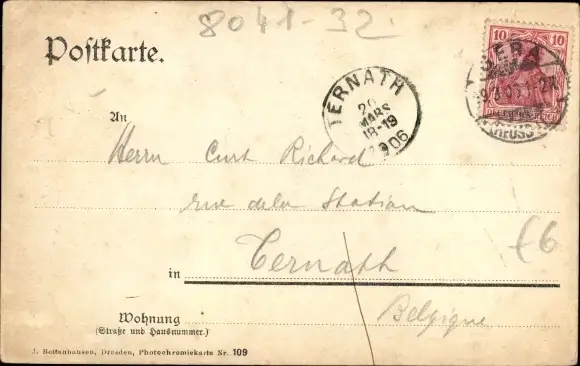 8041-32
Postkarte.
10 10
GERA
TERNATH
20
MARS
18-19
1906
An
Herrn Curt Richard
rue de la Station
€6
in Ternath
Belgique
Wohnung
(Straße und Hausnummer.)
J. Bettenhausen, Dresden, Photochromiekarte Nr. 109